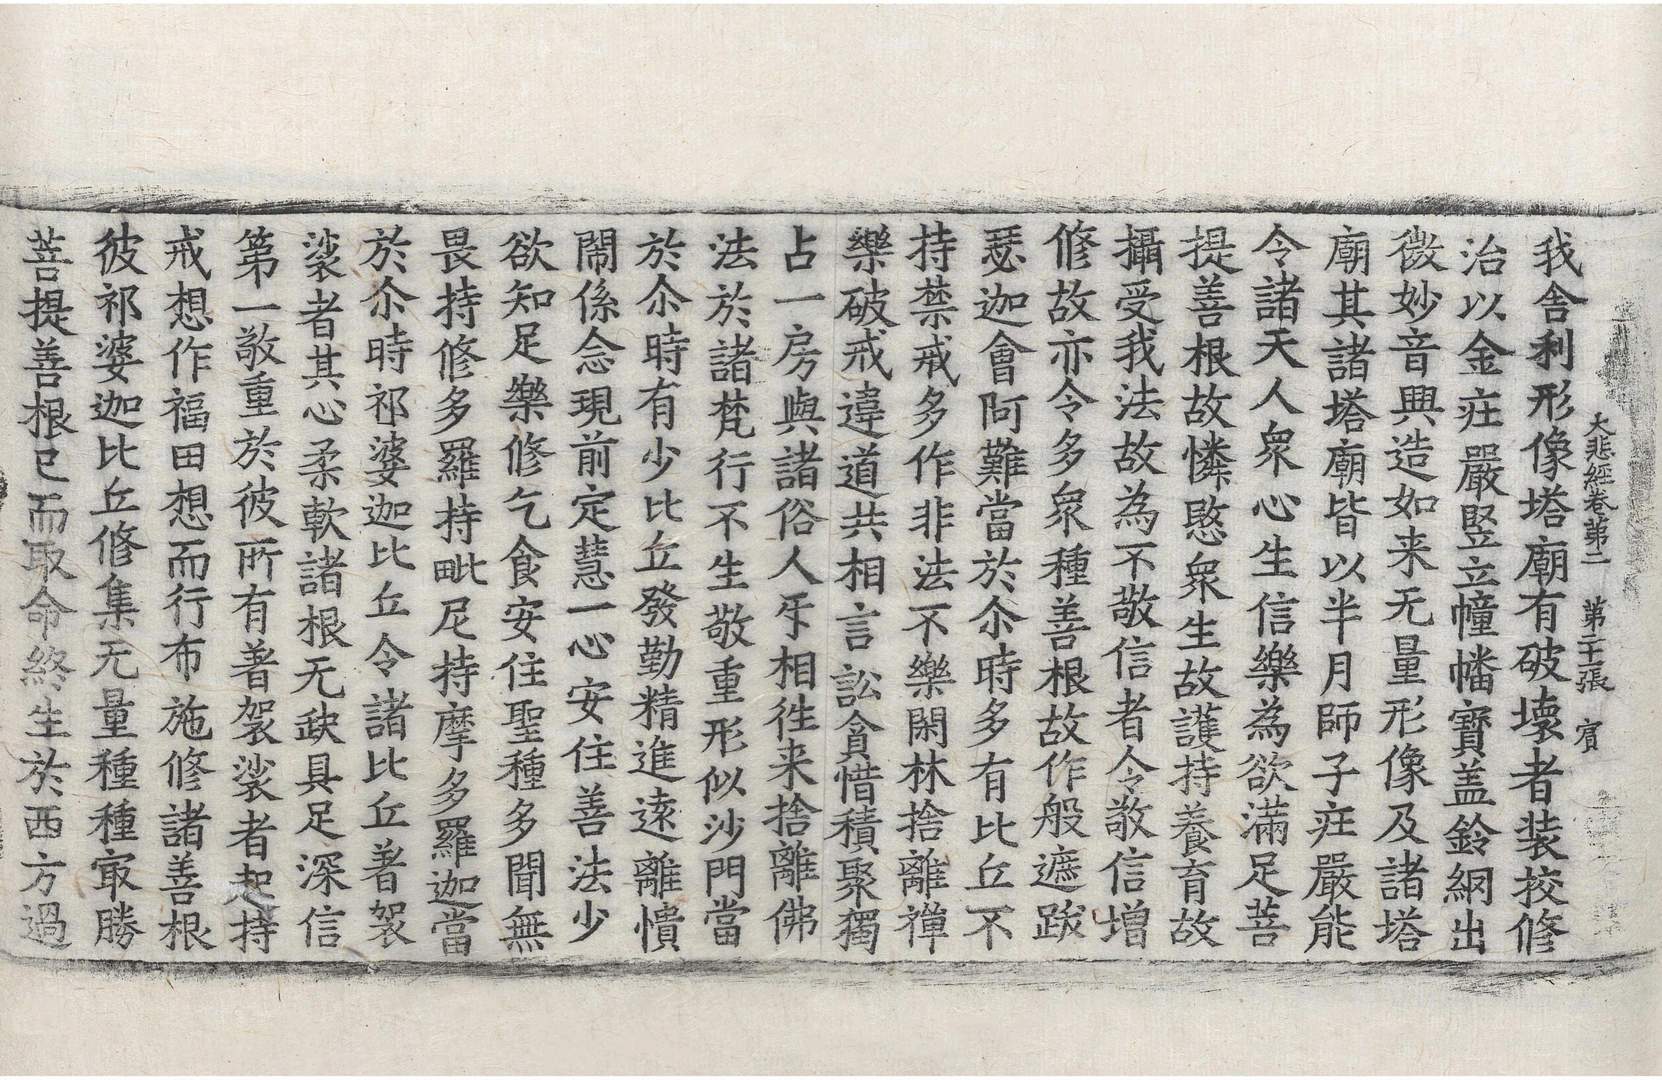 大悲經卷第二　第二十張　賓
我舍利形像塔廟有破壞者装挍修
治以金㽵嚴竪立幢幡寶盖鈴網出
微妙音興造如来无量形像及諸塔
廟其諸塔廟皆以半月師子㽵嚴能
令諸天人衆心生信樂為欲滿足菩
提善根故憐愍衆生故護持養育故
攝受我法故為不敬信者令敬信增
修故亦令多衆種善根故作般遮跋
瑟迦會阿難當於尒時多有比丘不
持禁戒多作非法不樂閑林捨離禪
樂破戒違道共相言訟貪惜積聚獨
占一房與諸俗人㸦相往来捨離佛
法於諸梵行不生敬重形似沙門當
於尒時有少比丘發勤精進遠離憒
閙係念現前定慧一心安住善法少
欲知足樂修乞食安住聖種多聞無
畏持修多羅持毗尼持摩多羅迦當
於尒時祁婆迦比丘令諸比丘著袈
裟者其心柔軟諸根无缺具足深信
第一敬重於彼所有著袈裟者起持
戒想作福田想而行布施修諸善根
彼祁婆迦比丘修集无量種種㝡勝
菩提善根已而取命終生於西方過